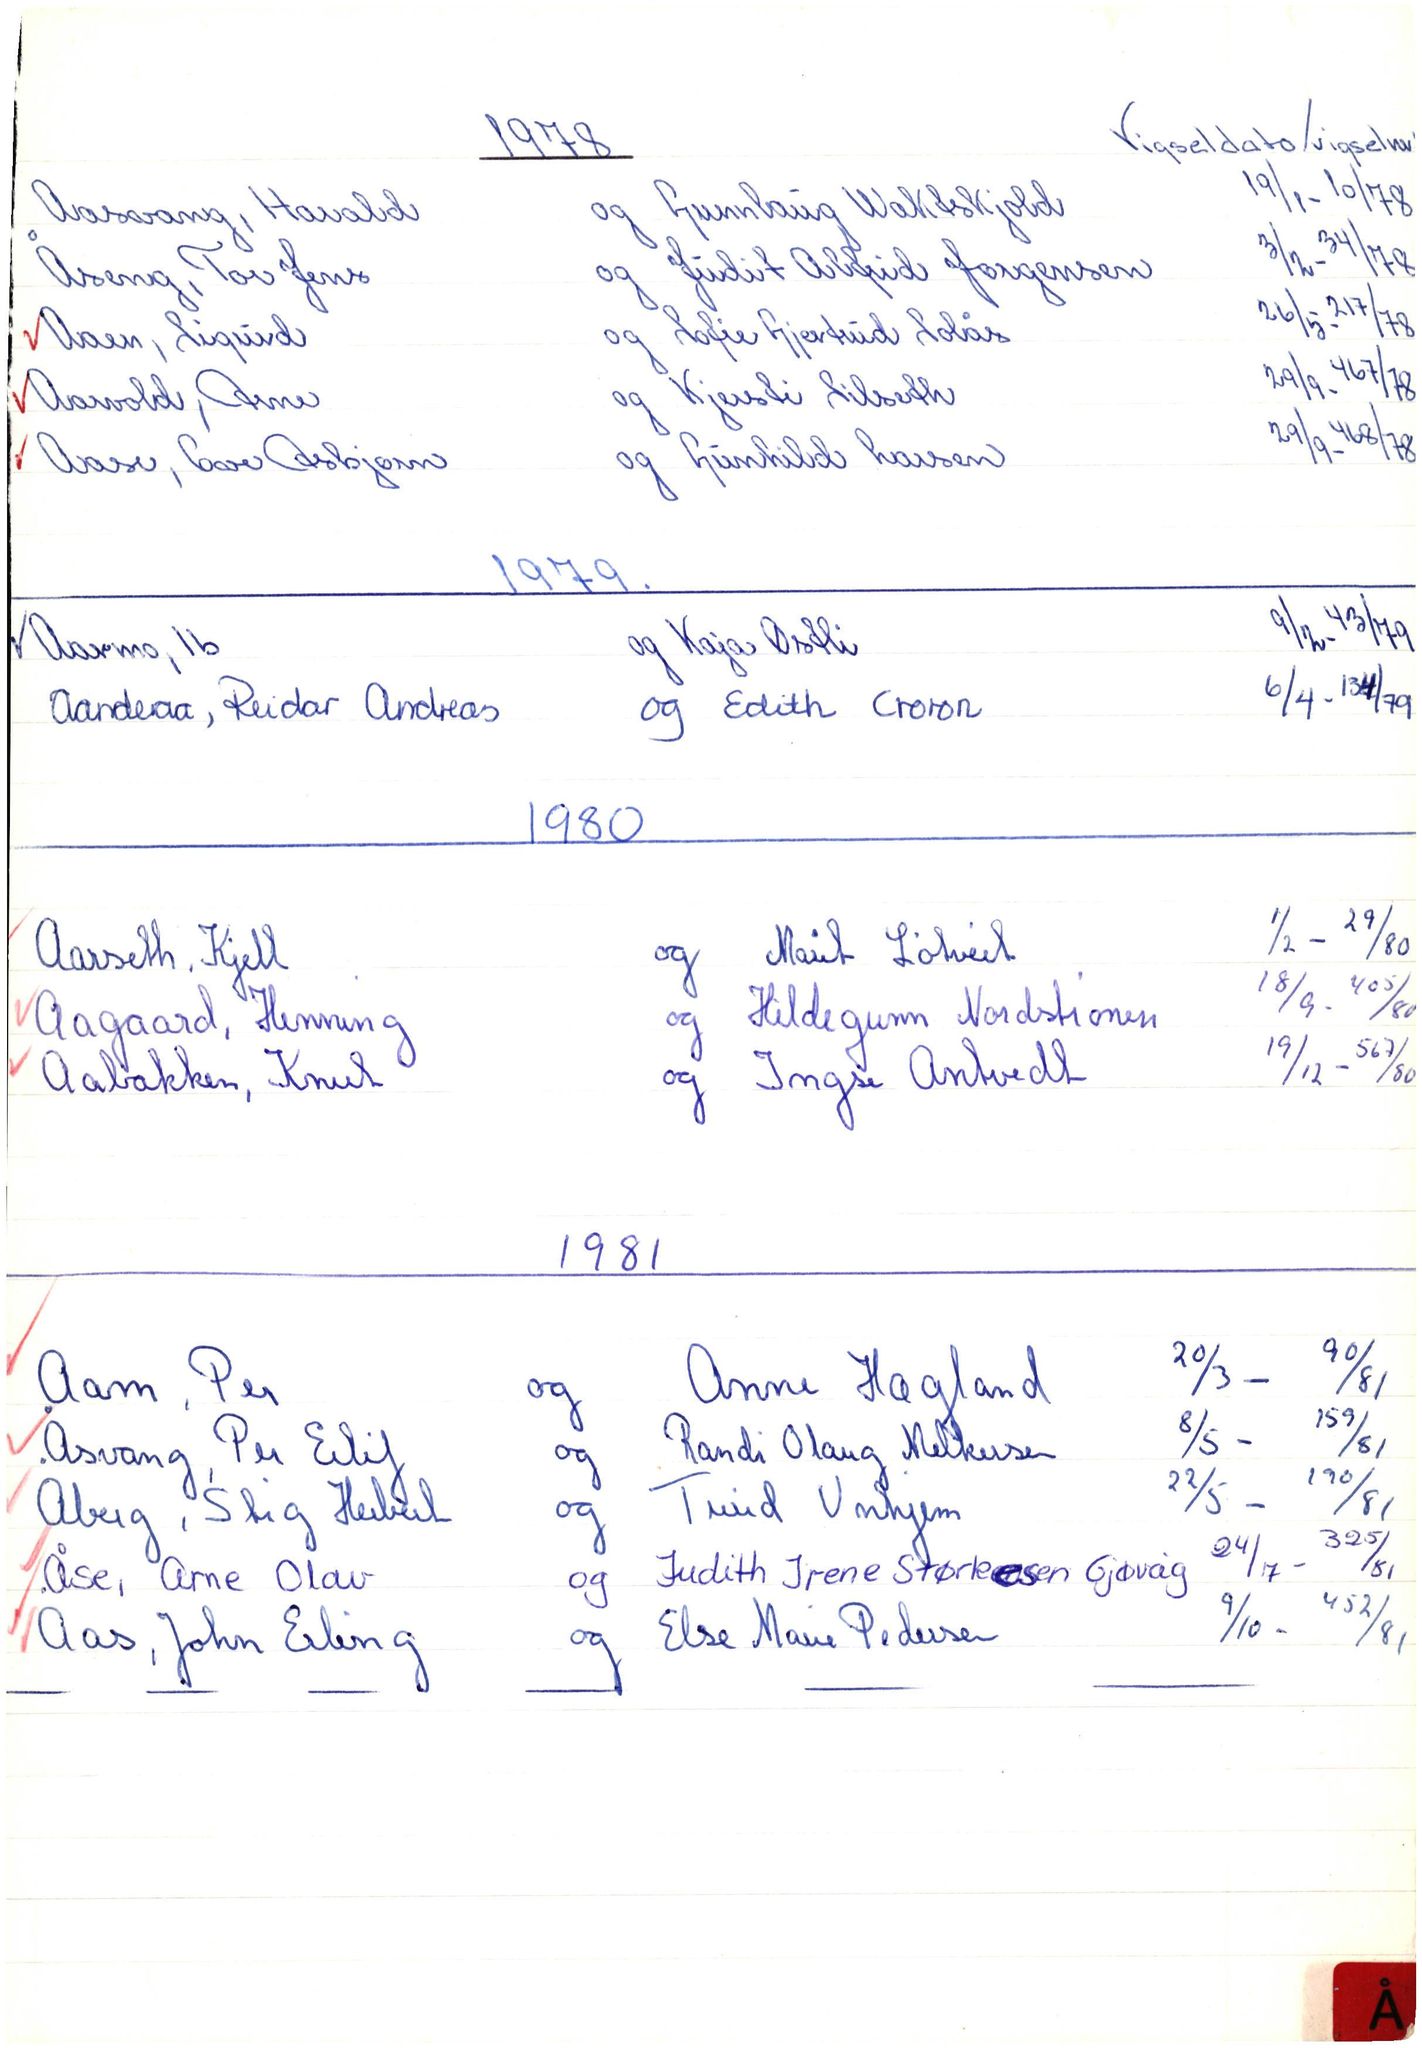 1978
Vigseldato/vigselnr
Aasvang, Harald og Gunnhaug Waktskjold 19/1 - 10/78
Åseng, Tor Jens og Judit Alfrid Jorgensen 3/2 - 34/78
Aaen, Sigurd og Sofie Gjertrud Solås 26/5 - 217/78
Aarvold, Arne og Kjersti Lilseth 29/9 - 467/78
Aase, Asbjørn og Gunhild Larsen 29/9 - 468/78
1979.
Aarmo, Ib og Kaja Østli 9/2 - 43/79
Aanderaa, Reidar Andreas og Edith Croron 6/4 - 134/79
1980
Aarseth, Kjell og Marit Lötveit 1/2 - 29/80
Aagaard, Henning og Hildegunn Nordstrønen 18/9 - 405/80
Aabakken, Knut og Inge Antvedt 19/12 - 567/80
1981
Aam, Per og Anne Hagland 20/3 - 90/81
Åsvang, Per Eilif og Randi Olaug Melkersen 8/5 - 159/81
Åberg, Stig Herbert og Turid Vinhjem 22/5 - 190/81
Åse, Arne Olav og Judith Irene Størkersen Gjøvåg 24/7 - 325/81
Aas, John Erling og Else Marie Pedersen 9/10 - 452/81
Å